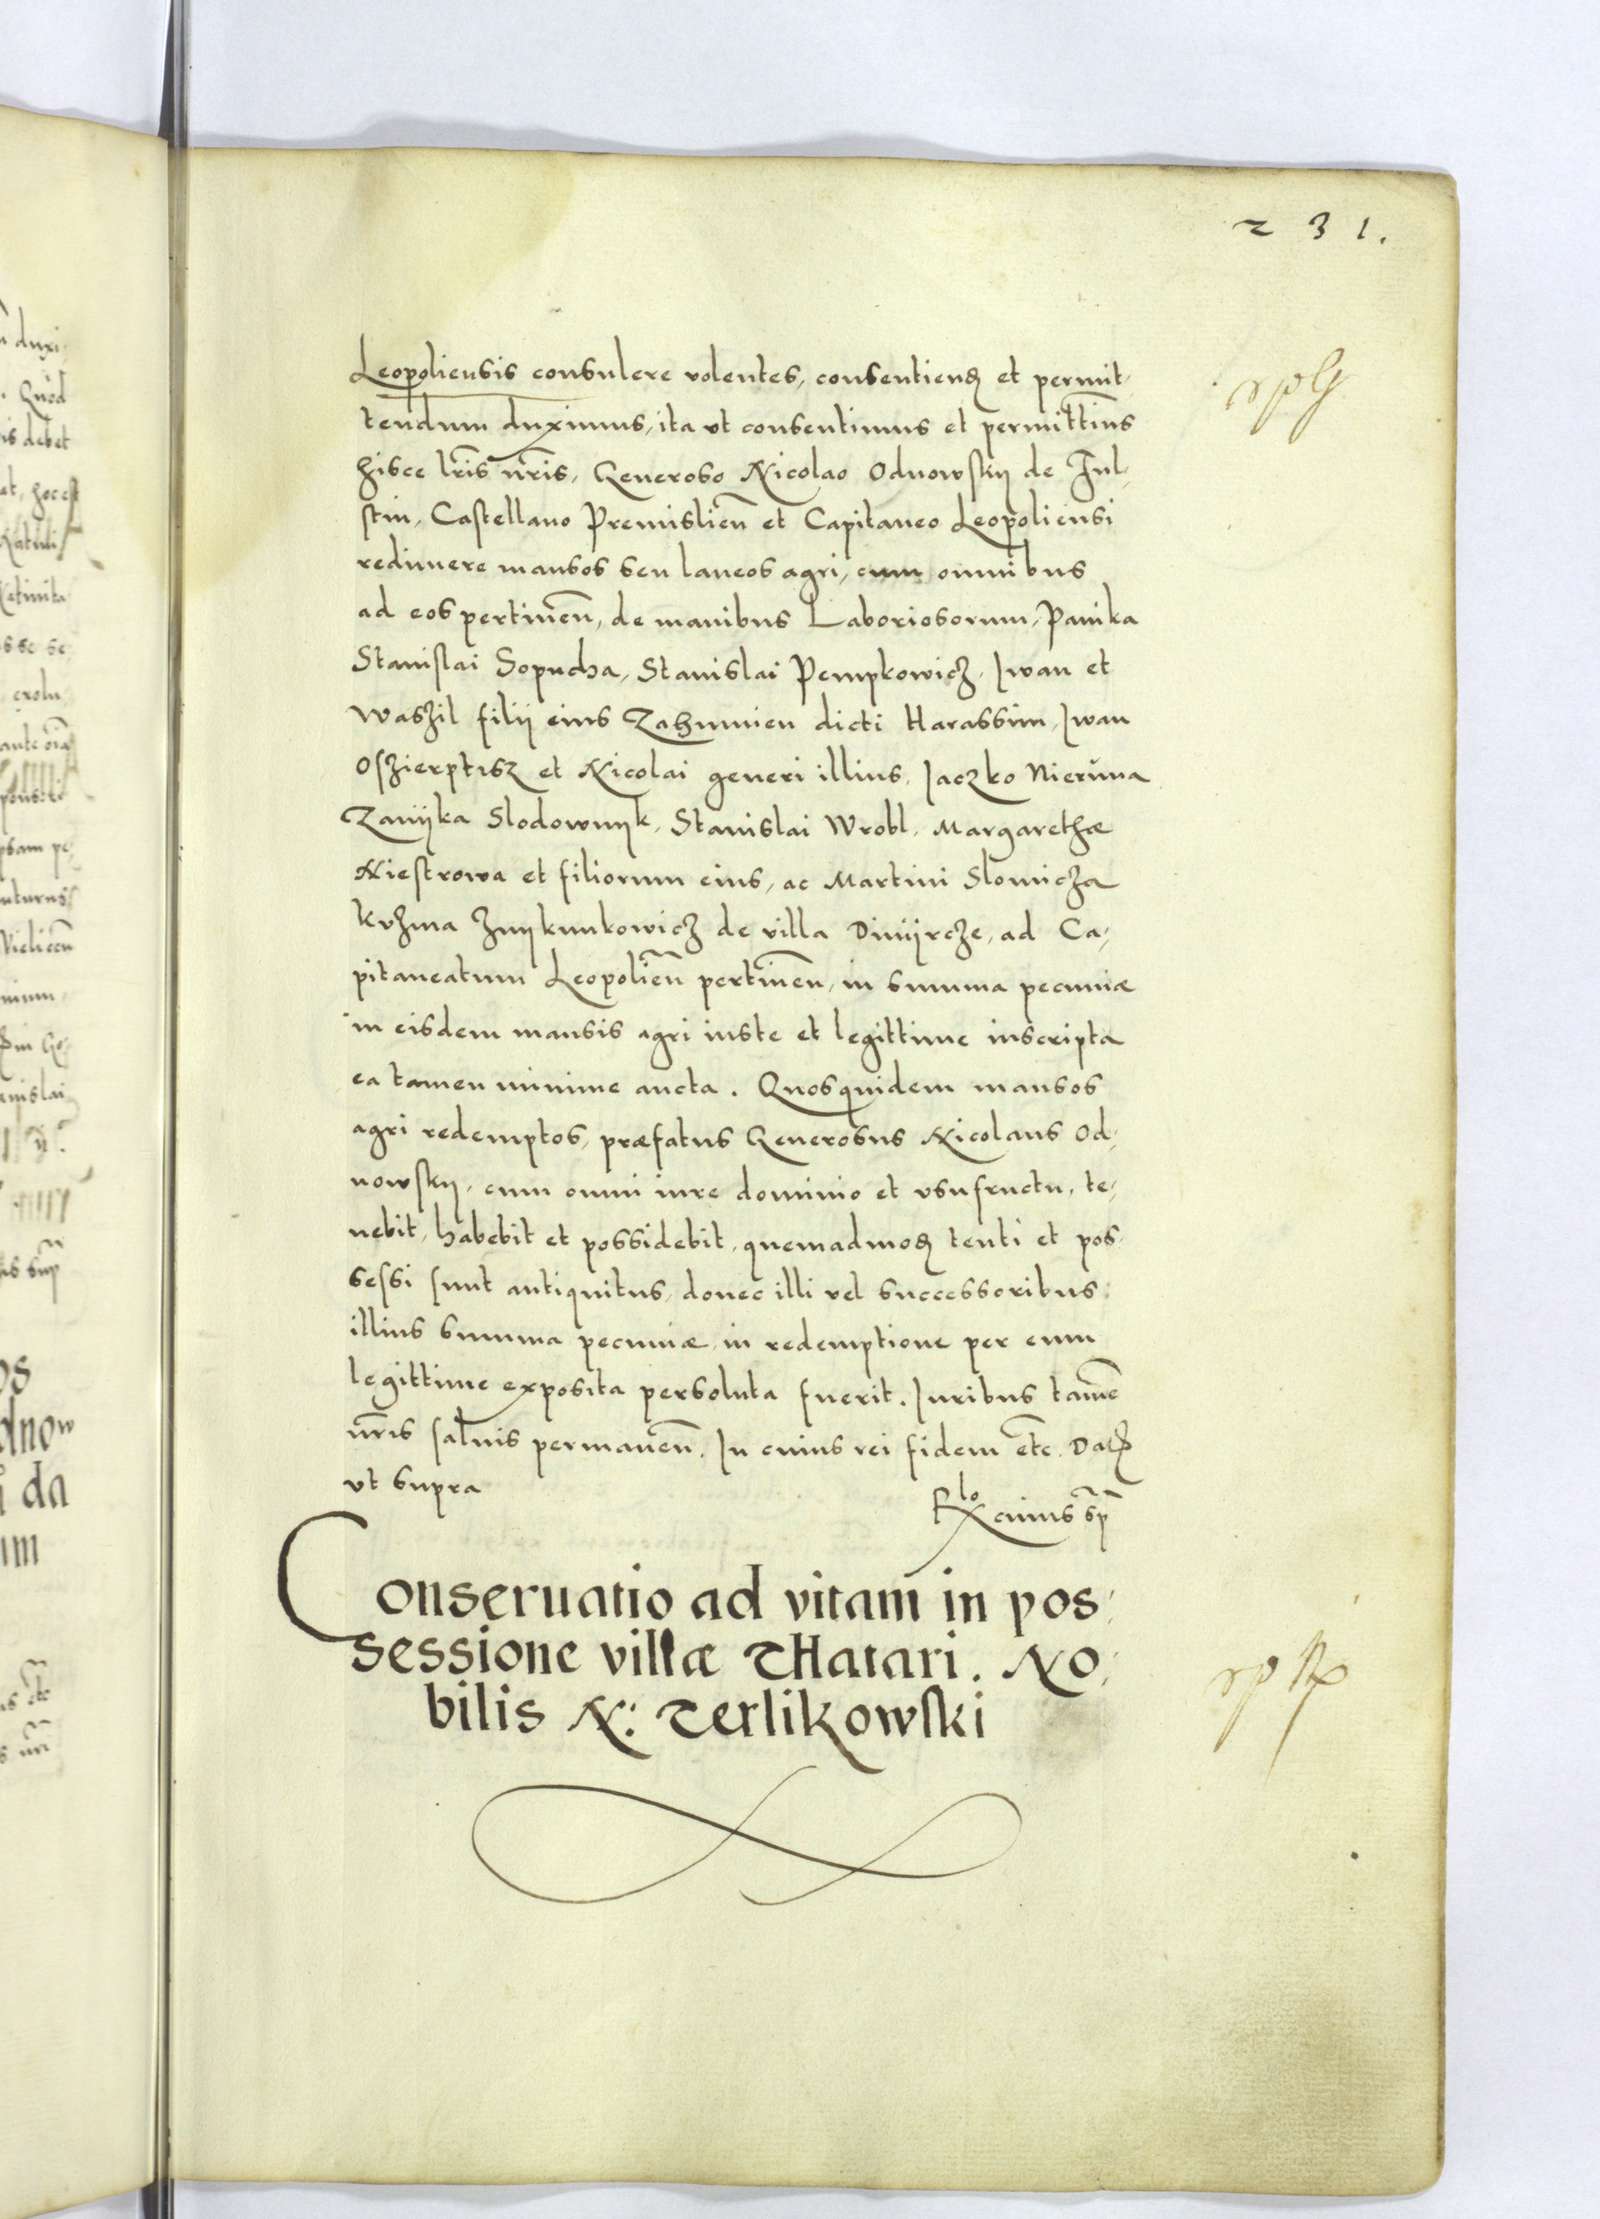 231.
Leopoliensis consulere volentes, consentiend et permit-
tendum duximus, ita vt consentimus et permittim̃us
hisce lr̃is nr̃is, Generoso Nicolao Odnowskij de Ful-
stin, Castellano Premislieñ et Capitaneo Leopoliensi
redimere mansos seu laneos agri, cum omnibus
ad eos pertineñ, de manibus Laboriosorum, Panika
Stanislai Sopucha, Stanislai Pempkowicz, Iwan et
Waszil filij eius Zahumien dicti Harassim, Iwan
Oszierptisz et Nicolai generi illius, Iaczko Nieruna
Zanijka Slodownijk, Stanislai Wrobl, Margarethæ
Niestrowa et filiorum eius, ac Martini Slomicza
Kuzma de villa Dmijrcze, ad Ca-
pitaneatum Leopolieñ pertineñ, in summa pecuniæ
in eisdem mansis agri iuste et legittime inscripta
ea tamen minime aucta. Quosquidem mansos
agri redemptos, præfatus Generosus Nicolaus Od-
nowskij, cum omni iure dominio et vsufructu, te-
nebit, habebit et possidebit, quemadmod tenti et pos-
sessi sunt antiquitus, donec illi vel successoribus
illius summa pecuniæ, in redemptione per eum
legittime exposita persoluta fuerit. Iuribus tameñ
nr̃is saluis permaneñ. In cuius rei fidem etc. Dat
vt supra
Rlo cuius sup
Conseruatio ad vitam in pos-
sessione villæ THatari. No-
bilis N: Terlikowski